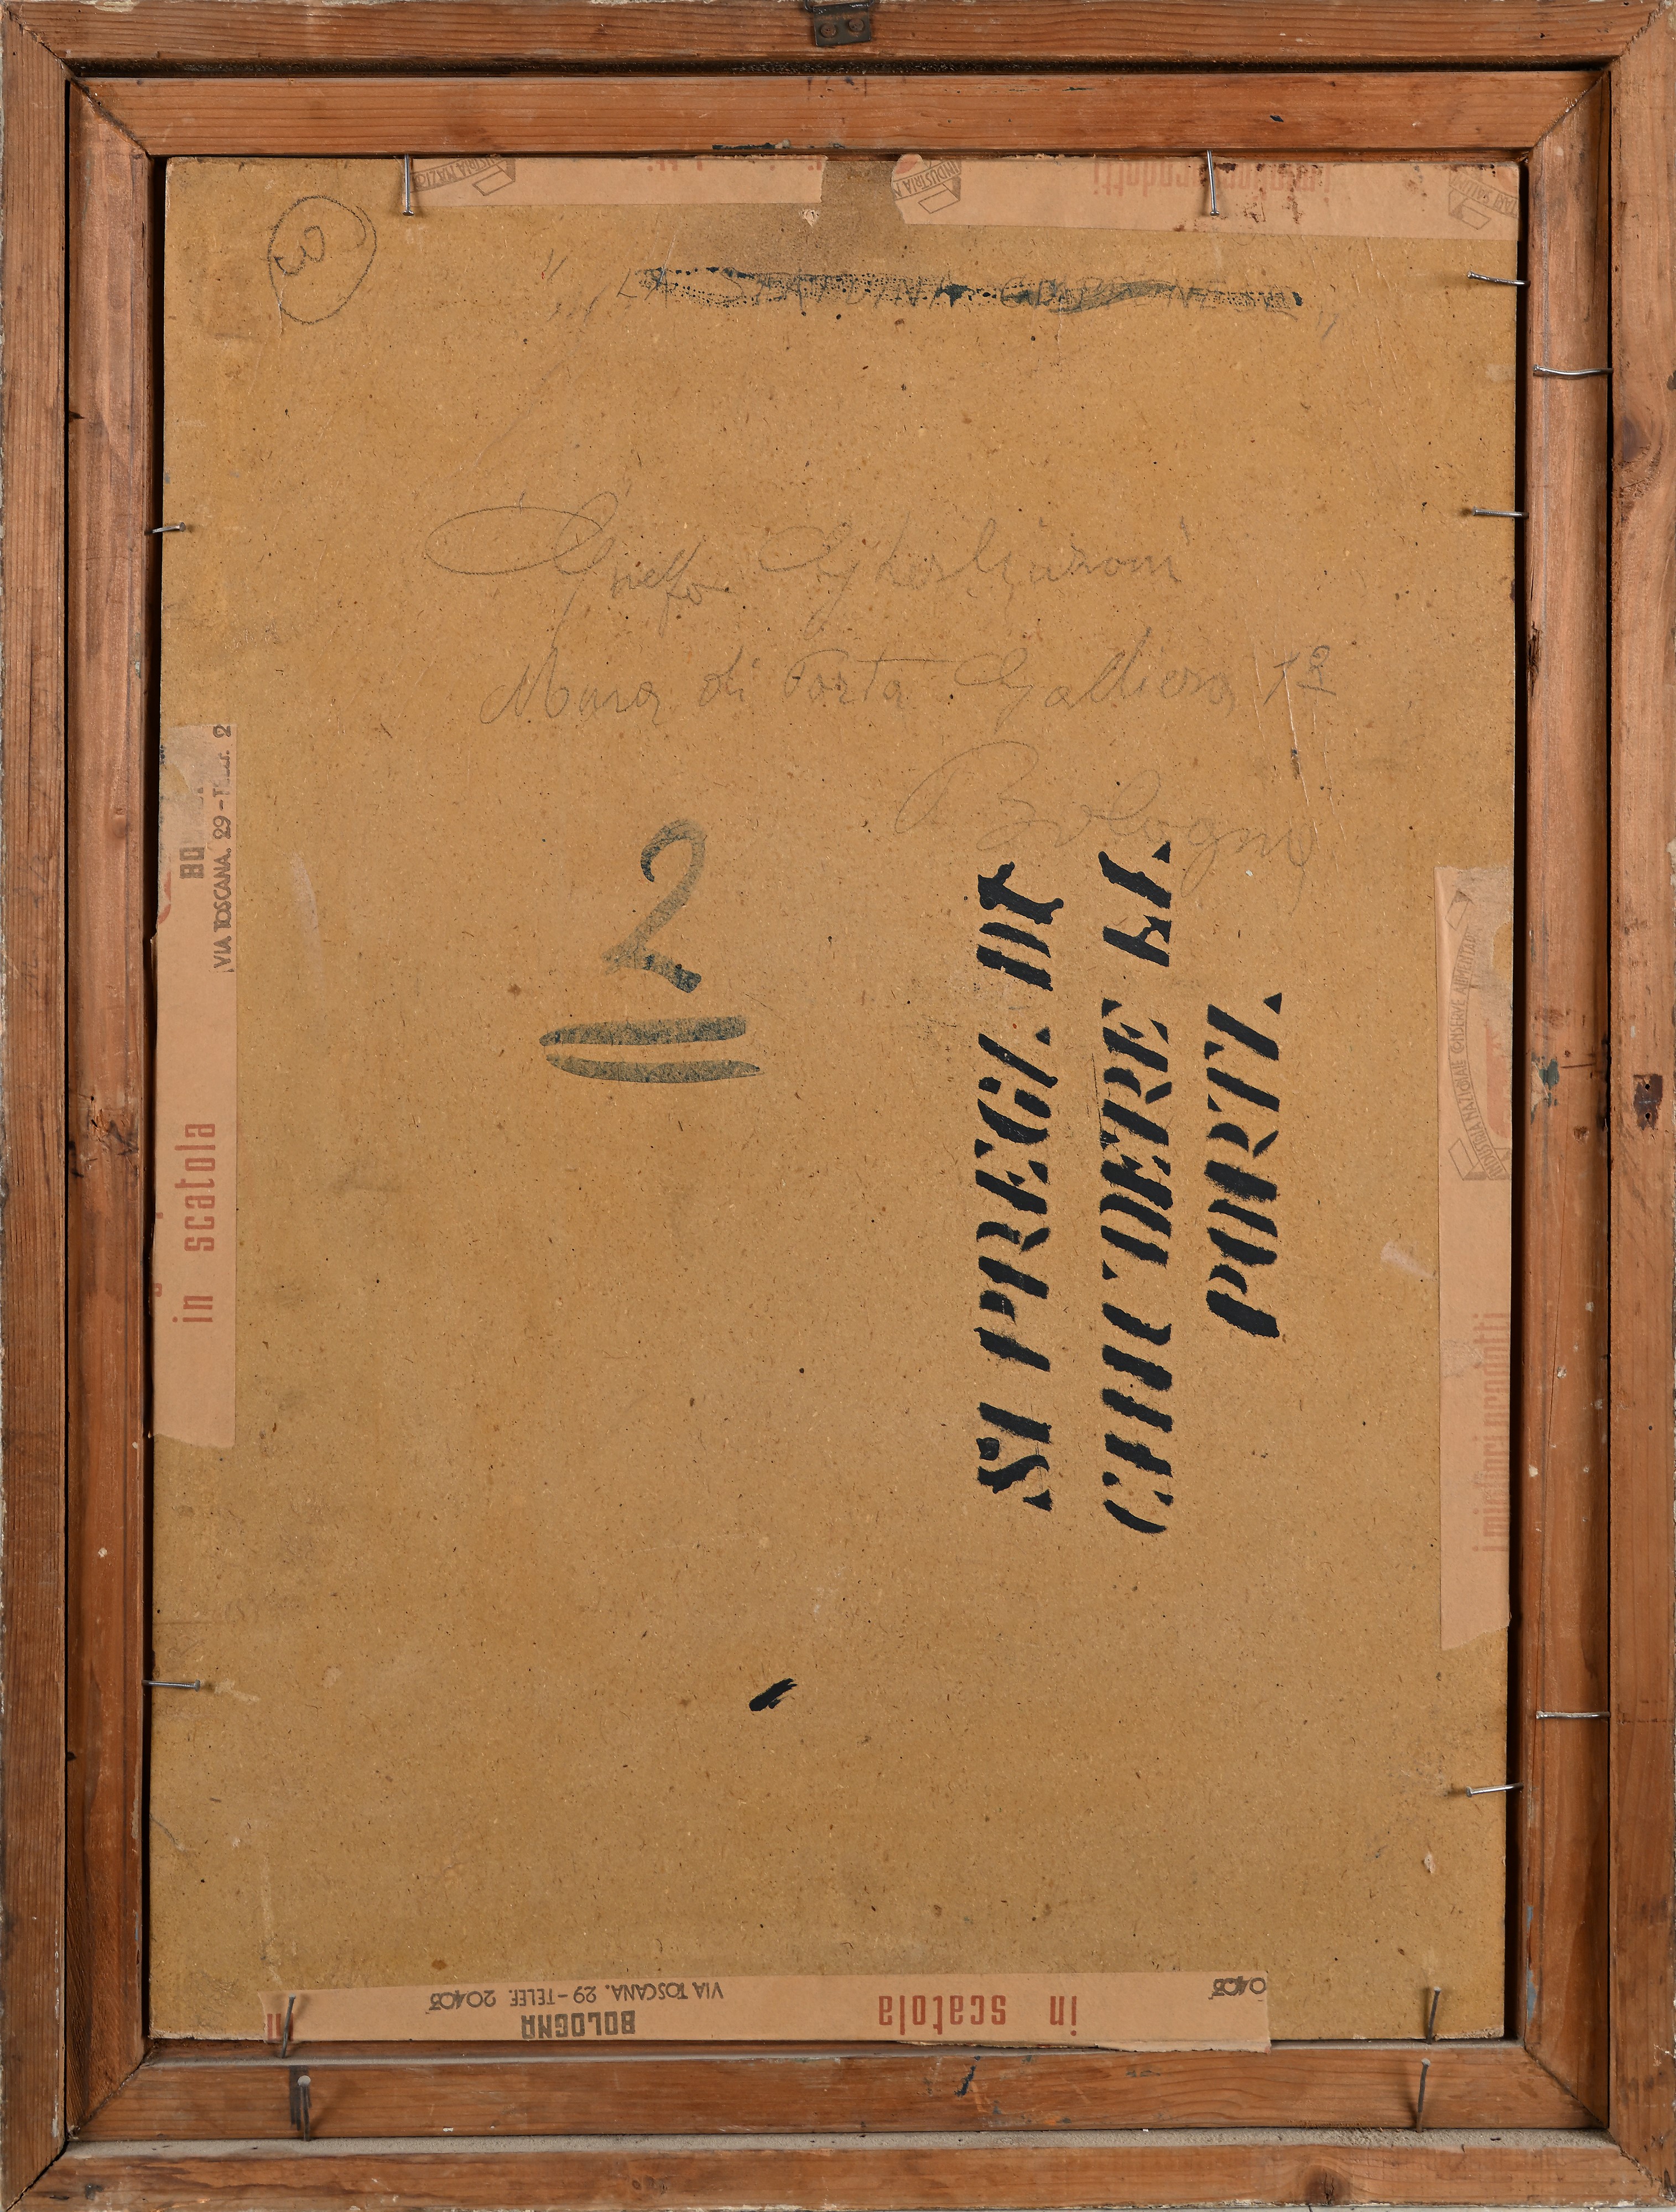 30
" LA STATUINA GIAPPONESE "
Mura di Porta Galliera 1º
Bologna
2
SI PREGA DI
CHIUDERE LA
PORTA
INDUSTRIA NAZIO
INDUSTRIA N
i migliori prodotti
BO
VIA TOSCANA, 29 - TELEF. 2
in scatola
INDUSTRIA NAZIONALE CONSERVE ALIMENTARI
i migliori prodotti
VIA TOSCANA, 29 - TELEF. 20403
BOLOGNA
in scatola
0403